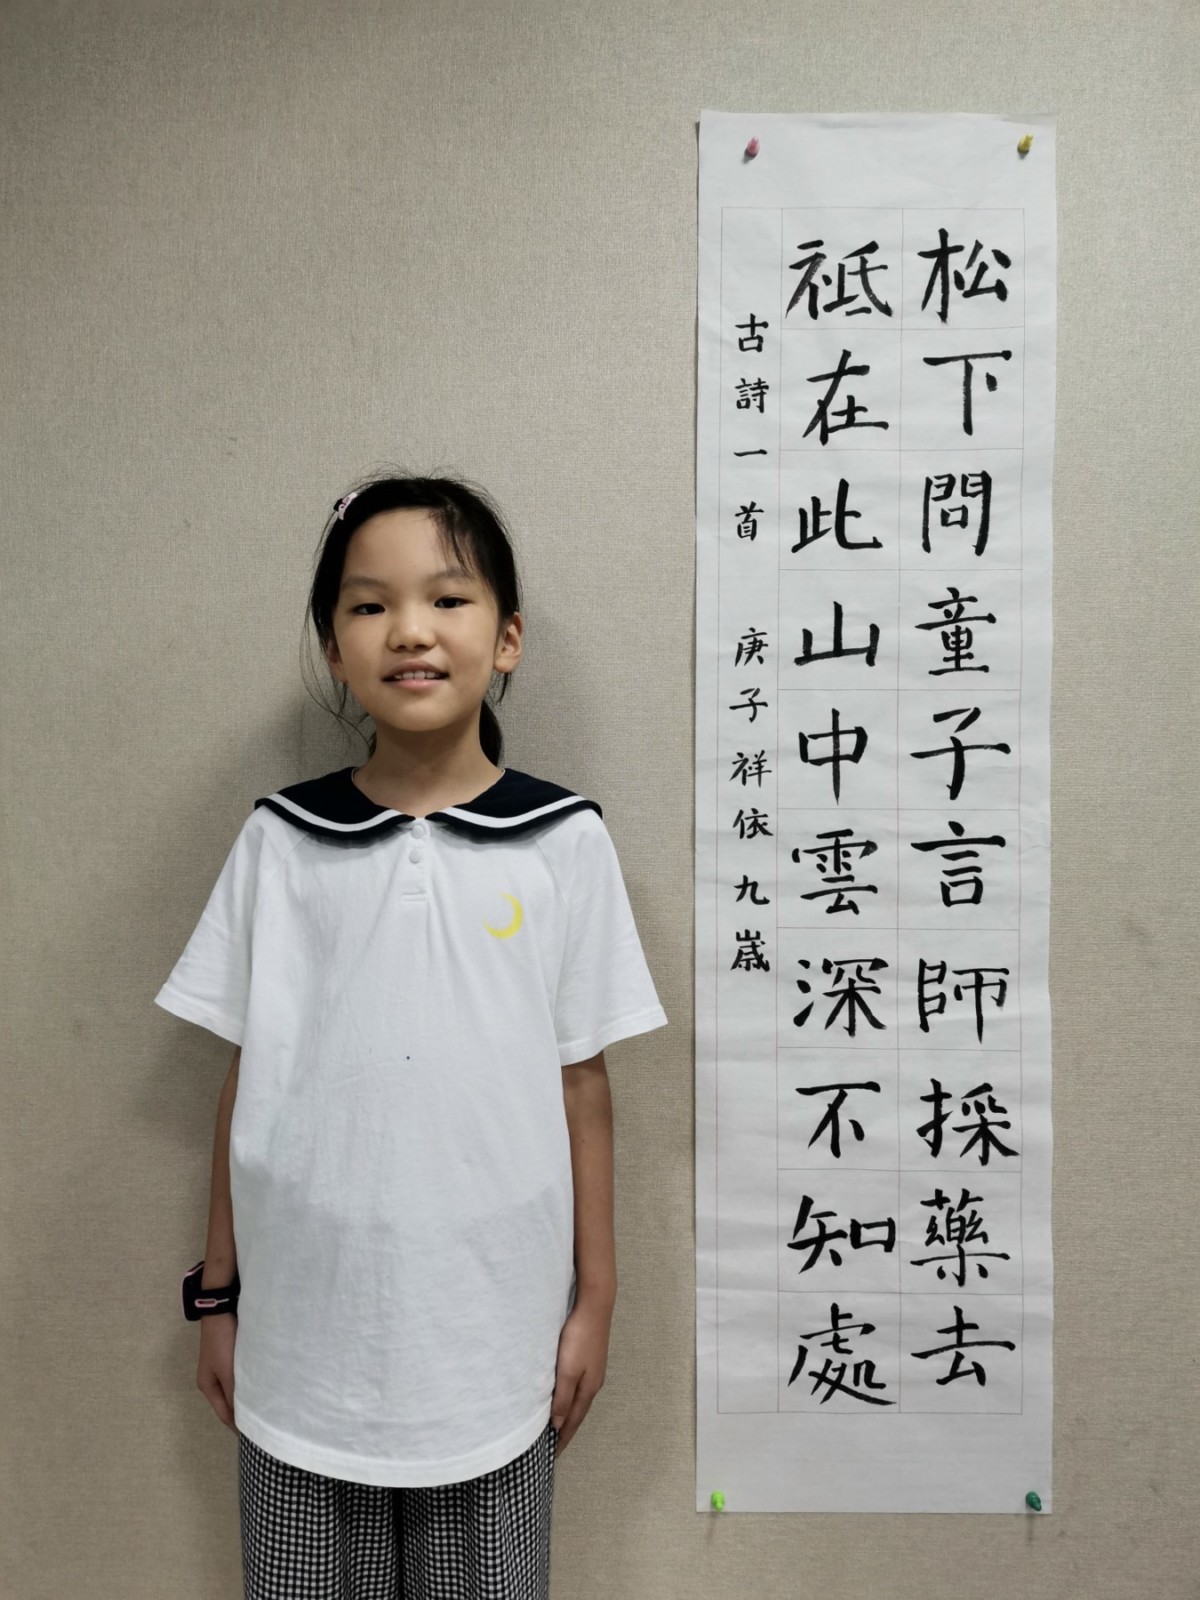 松下問童子言師採藥去
祗在此山中雲深不知處
古詩一首 庚子祥依九歳